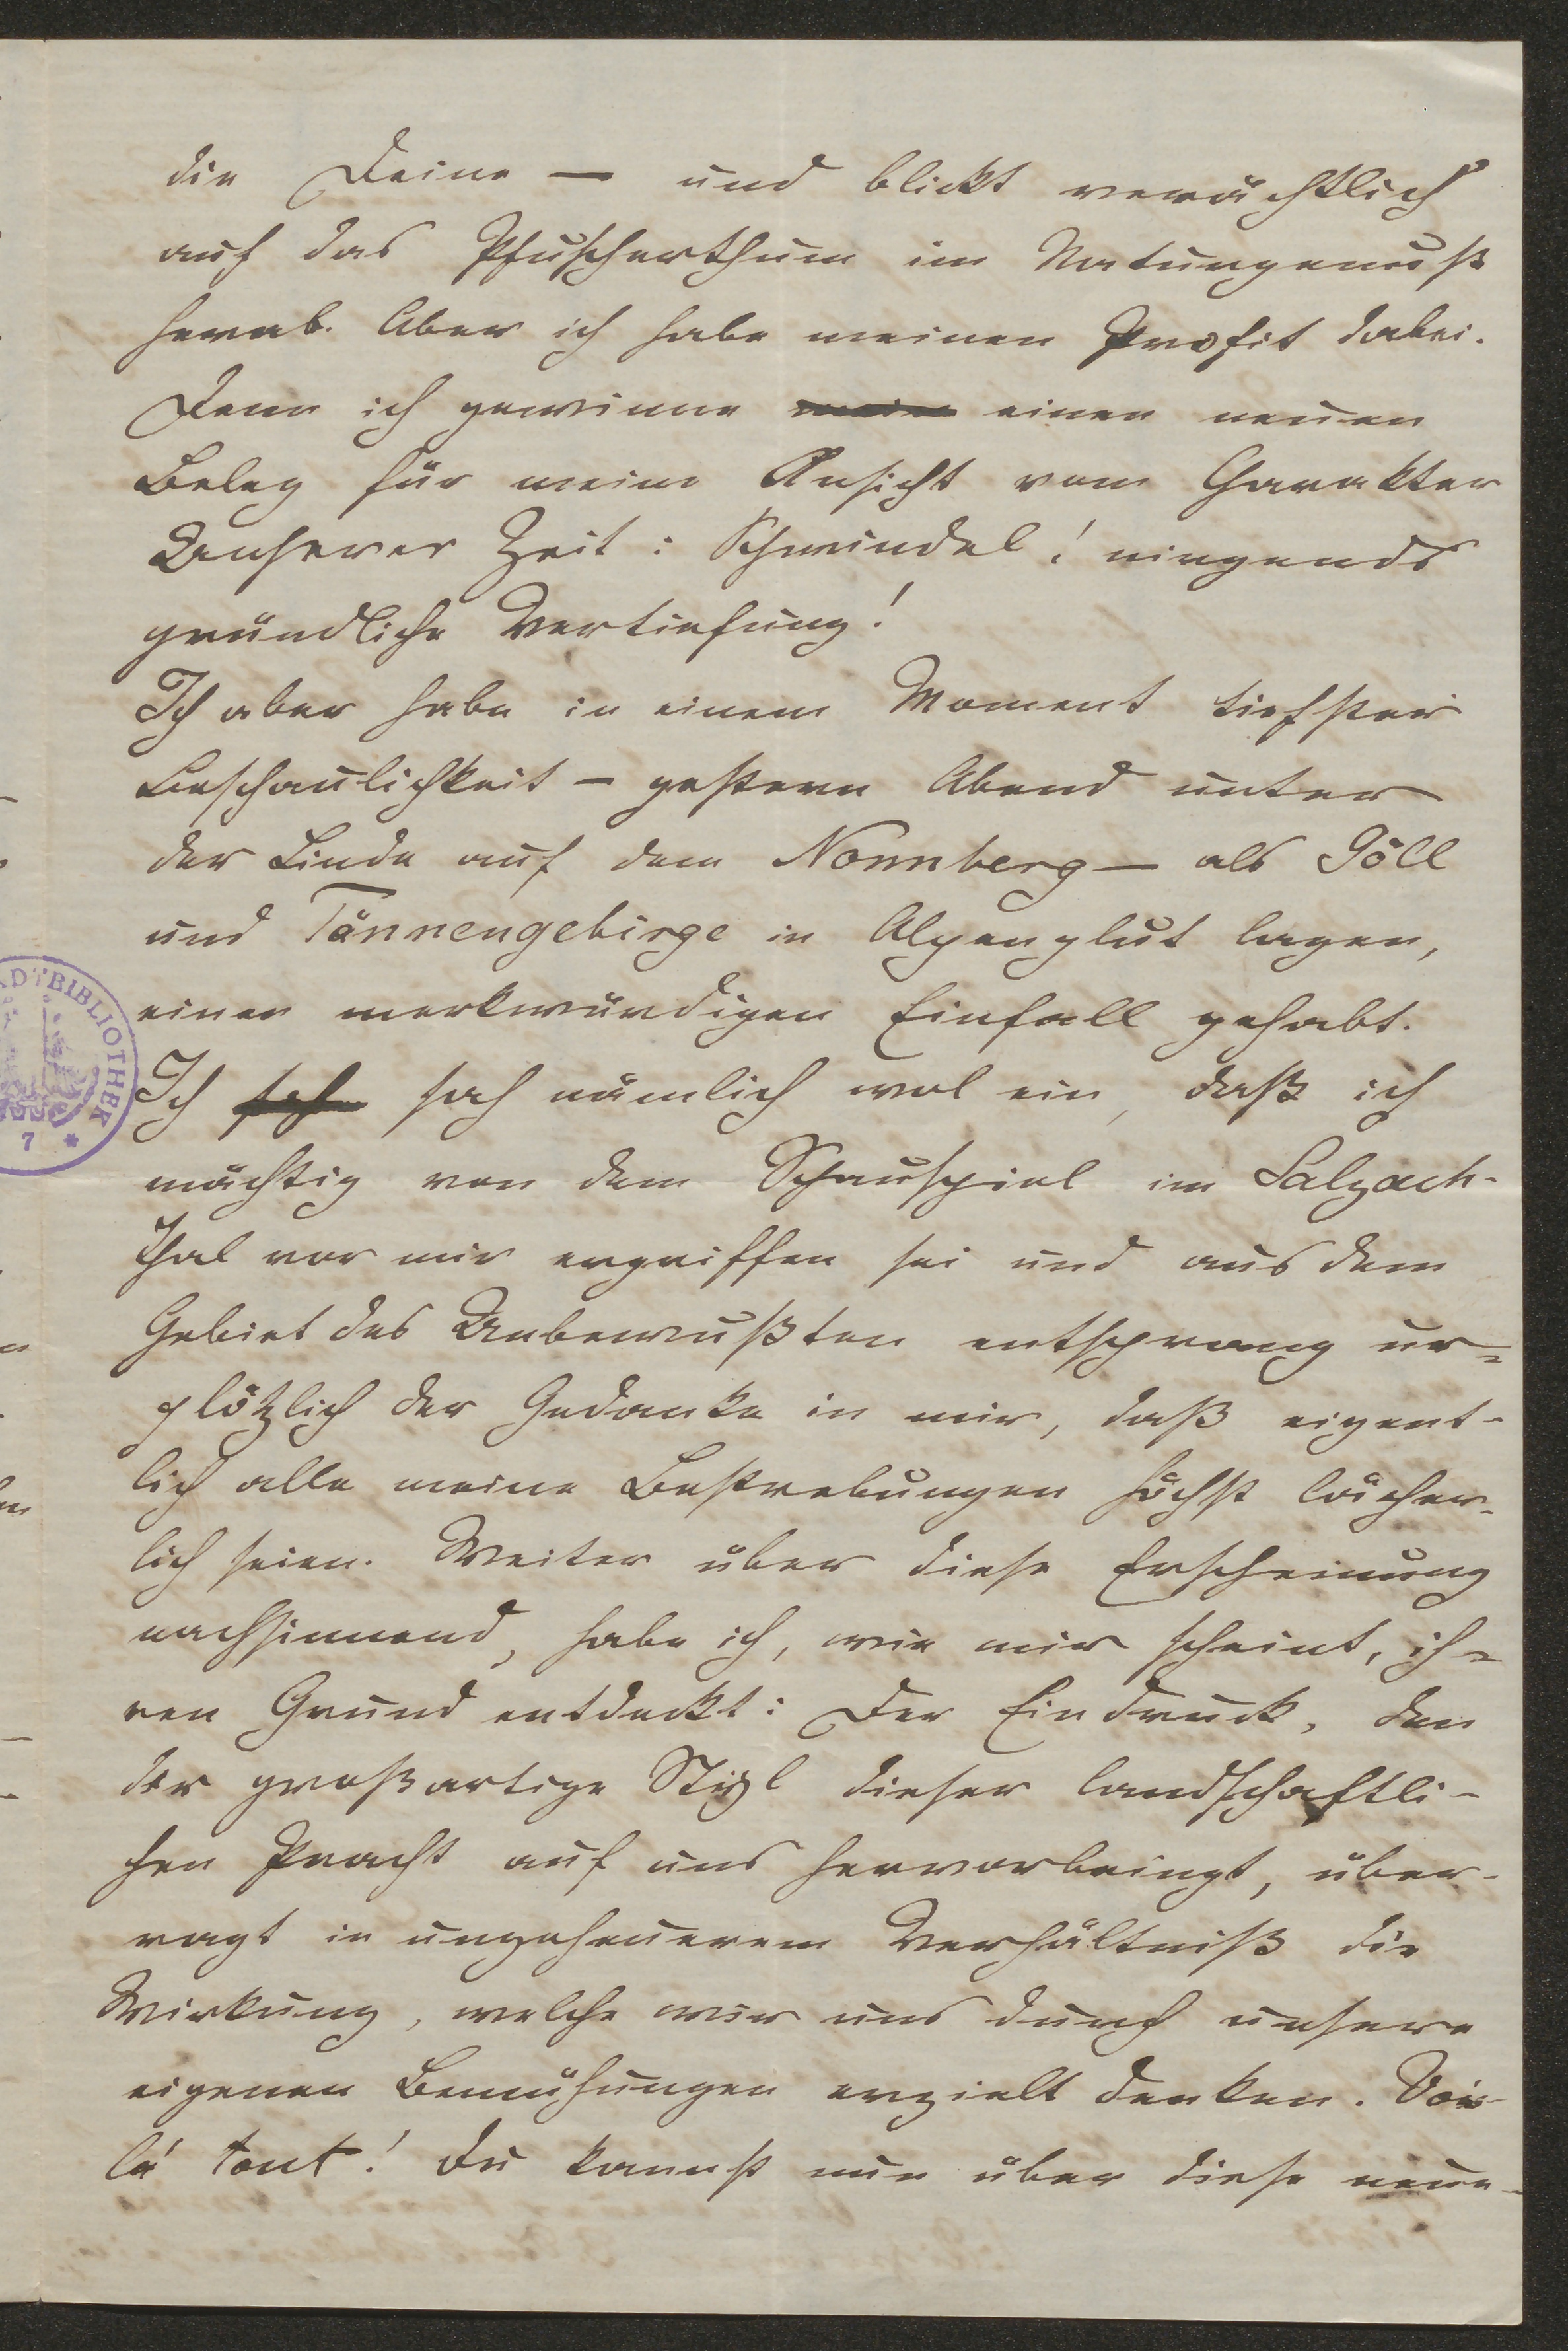 die Deine — und blickt verächtlich
auf das Pfuscherthum im Naturgenuß
herab. Aber ich habe meinen Profit dabei.
Denn ich gewinne mein einen neuen
Beleg für meine Ansicht vom Charakter
Unserer Zeit: Schwindel! nirgends
gründliche Vertiefung!
Ich aber habe in einem Moment tiefster
Beschaulichkeit – gestern Abend unter
der Linde auf dem Nonnberg — als Göll
und Tännengebirge in Alpenglut lagen,
einen merkwürdigen Einfall gehabt.
Ich sah nämlich wol ein, daß ich
mächtig von dem Schauspiel im Salzach-
thal vor mir ergriffen sei und aus dem
Gebiet des Unbewußten entsprang ur=
plötzlich der Gedanke in mir, daß eigent-
lich alle meine Bestrebungen höchst lächer-
lich seien. Weiter über diese Erscheinung
nachsinnend, habe ich, wie mir scheint, ih=
ren Grund entdeckt: Der Eindruck, den
der großartige Styl dieser landschaftli-
chen Pracht auf uns hervorbringt, über-
ragt in ungeheuerem Verhältniß die
Wirkung, welche wir uns durch unsere
eigenen Bemühungen erzielt denken. Voi-
là tout! Du kannst nun über diese neue-
DTBIBLIOTHEK
7 *